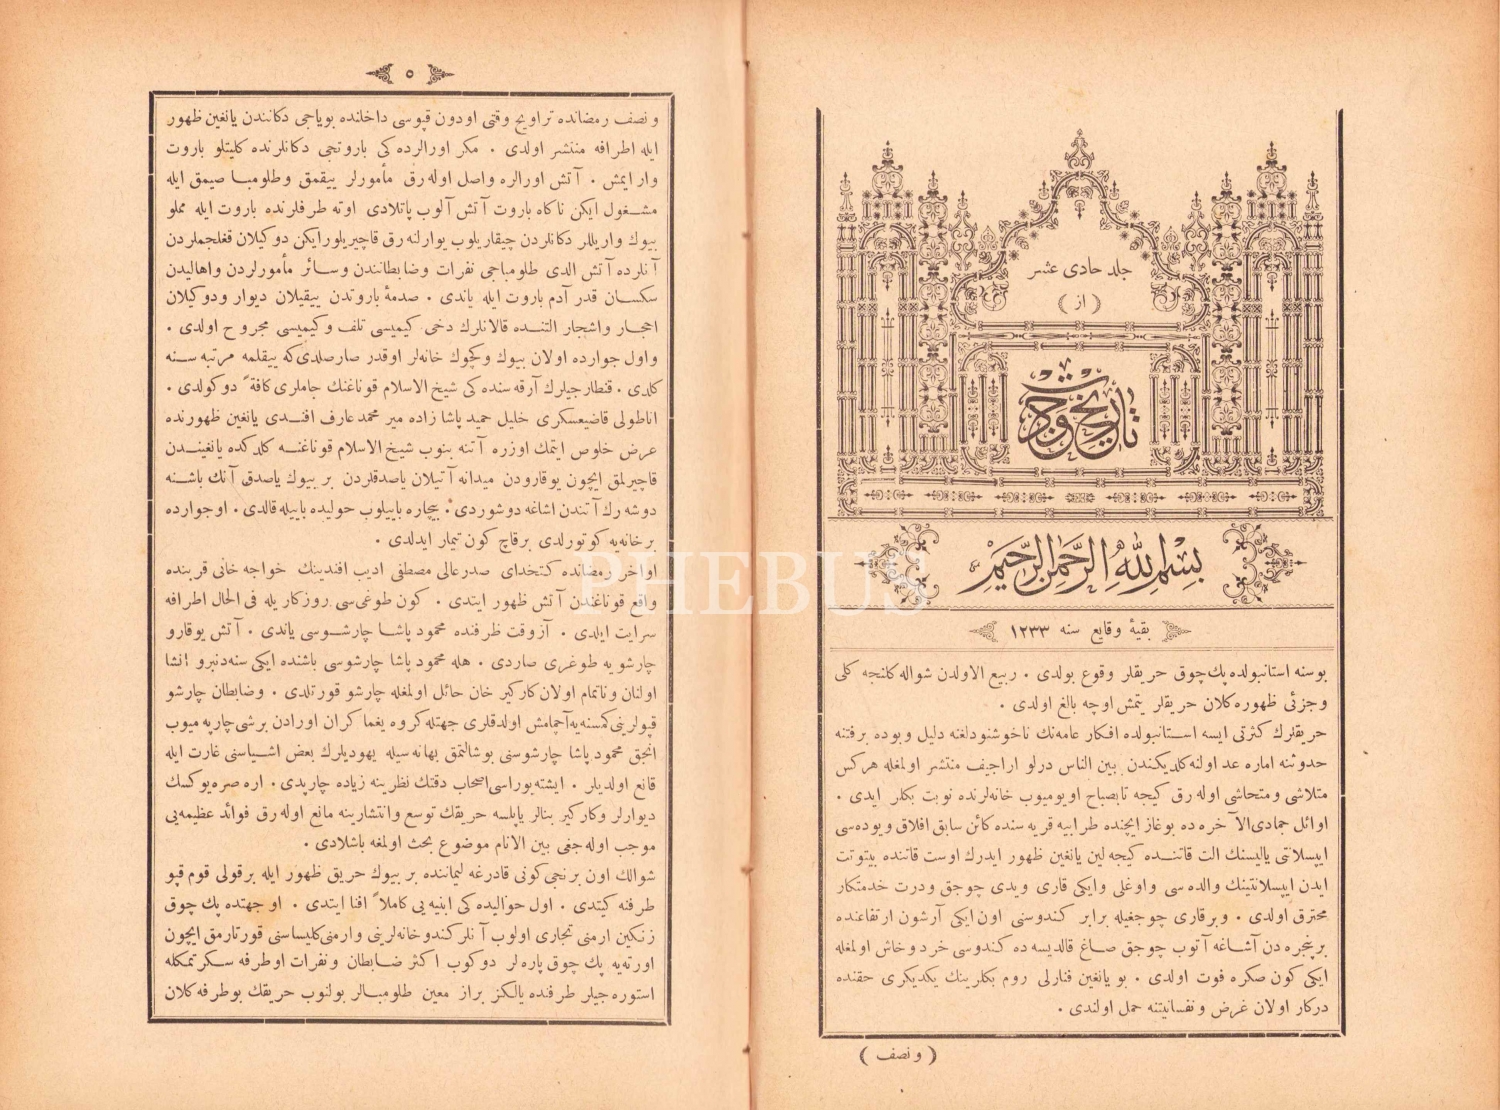 جلد حادی عشر
( از )
تاریخ جودت
بسم الله الرحمن الرحیم
بقیهٔ وقایع سنه ۱۲۳۳
بوسنه استانبولده پك چوق حریقلر وقوع بولدی . ربیع الاولدن شواله كلنجه كلی
و جزئی ظهوره كلان حریقلر یتمش اوچه بالغ اولدی .
حریقلرك كثرتی ایسه استانبولده افكار عامه‌نك ناخوشنودلغنه دلیل و بوده برفتنه
حدوثنه اماره عد اولنه كلدیكندن بین الناس درلو اراجیف منتشر اولمغله هركس
متلاشی و متحاشی اوله رق كیجه تابصباح اویومیوب خانه‌لرنده نوبت بكلر ایدی .
اوائل جمادی‌الآ خره ده بوغاز ایچنده طرابیه قریه سنده كائن سابق افلاق ویوده سی
ایپسلانتی یالیسنك الت قاتنده كیجه لین یانغین ظهور ایدرك اوست قاتنده بیتوتت
ایدن ایپسلانتینك والده سی و اوغلی و ایكی قاری ویدی چوجق ودرت خدمتكار
محترق اولدی . و برقاری چوجغیله برابر كندوسنی اون‌ایكی آرشون ارتفاعنده
برپنجره دن آشاغه آتوب چوجق صاغ قالدیسه ده كندوسی خرد وخاش اولمغله
ایكی كون صكره فوت اولدی . بو یانغین فنارلی روم بكلرینك یكدیكری حقنده
دركار اولان غرض و نفسانیتنه حمل اولندی .
( و نصف )
۵
و نصف رمضانده تراویح وقتی اودون قپوسی داخلنده بویاجی دكانندن یانغین ظهور
ایله اطرافه منتشر اولدی . مكر اورالرده كی باروتجی دكانلرنده كلیتلو باروت
وار ایمش . آتش اورالره واصل اوله رق مأمورلر ییقمق وطلومبا صیمق ایله
مشغول ایكن ناكاه باروت آتش آلوب پاتلادی اوته طرفلرنده باروت ایله مملو
بیوك واریللر دكانلردن چیقاریلوب یوارلنه رق قاچیریلورایكن دوكیلان قغلجملردن
آنلرده آتش الدی طلومباجی نفرات وضابطانندن وسائر مأمورلردن واهالیدن
سكسان قدر آدم باروت ایله یاندی . صدمهٔ باروتدن ییقیلان دیوار ودوكیلان
احجار واشجار التنده قالانلرك دخی كیمیسی تلف وكیمیسی مجروح اولدی .
واول جوارده اولان بیوك وكچوك خانه‌لر اوقدر صارصلدی‌كه ییقلمه مرتبه سنه
كلدی . قنطارجیلرك آرقه سنده كی شیخ الاسلام قوناغنك جاملری كافةً دوكولدی .
اناطولی قاضیعسكری خلیل حمید پاشا زاده میر محمد عارف افندی یانغین ظهورنده
عرض خلوص ایتمك اوزره آتنه بنوب شیخ الاسلام قوناغنه كلدكده یانغیندن
قاچیرلمق ایچون یوقارودن میدانه آتیلان یاصدقلردن بر بیوك یاصدق آنك باشنه
دوشه رك آتندن اشاغه دوشوردی . بیچاره بایلوب حولیده باییله قالدی . اوجوارده
برخانه‌یه كوتورلدی برقاچ كون تیمار ایدلدی .
اواخر رمضانده كتخدای صدرعالی مصطفی ادیب افندینك خواجه خانی قربنده
واقع قوناغندن آتش ظهور ایتدی . كون طوغی‌سی روزكاریله فی الحال اطرافه
سرایت ایلدی . آزوقت ظرفنده محمود پاشا چارشوسی یاندی . آتش یوقارو
چارشویه طوغری صاردی . هله محمود پاشا چارشوسی باشنده ایكی سنه‌دنبرو انشا
اولنان و ناتمام اولان كاركیر خان حائل اولمغله چارشو قورتلدی . وضابطان چارشو
قپولرینی كمسنه‌یه آچمامش اولدقلری جهتله كروه یغماكران اورادن برشی چارپه میوب
انجق محمود پاشا چارشوسنی بوشالتمق بهانه سیله یهودیلرك بعض اشیاسنی غارت ایله
قانع اولدیلر . ایشته بوراسی اصحاب دقتك نظرینه زیاده چارپدی . اره صره یوكسك
دیوارلر وكاركیر بنالر یاپلسه حریقك توسع وانتشارینه مانع اوله رق فوائد عظیمه‌یی
موجب اوله جغی بین الانام موضوع بحث اولمغه باشلادی .
شوالك اون برنجی كونی قادرغه لیماننده بر بیوك حریق ظهور ایله برقولی قوم قپو
طرفنه كیتدی . اول حوالیده كی ابنیه یی كاملاً افنا ایتدی . او جهتده پك چوق
زنكین ارمنی تجاری اولوب آنلر كندو خانه‌لرینی وارمنی كلیساسنی قورتارمق ایچون
اورته‌یه پك چوق پاره لر دوكوب اكثر ضابطان ونفرات اوطرفه سكرتمكله
استوره جیلر طرفنده یالكز براز معین طلومبالر بولنوب حریقك بوطرفه كلان
PHEBUS